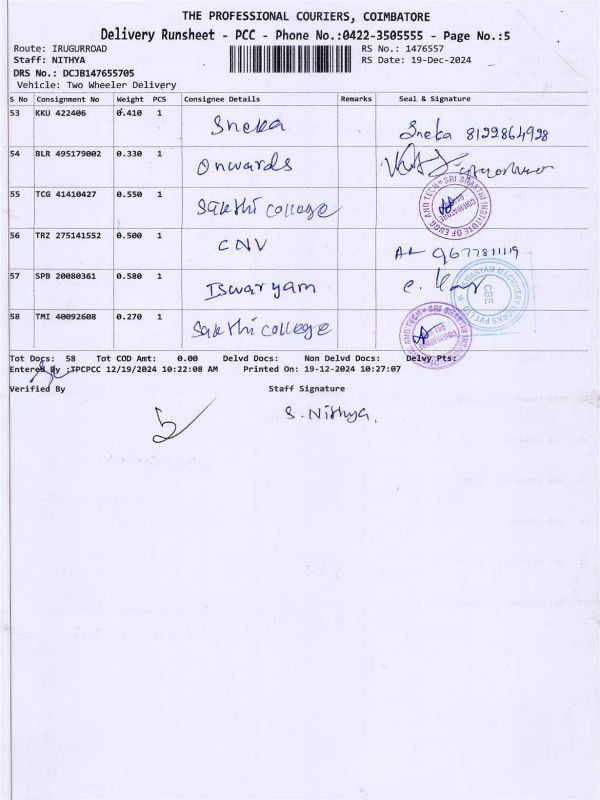 THE PROFESSIONAL COURIERS, COIMBATORE
Delivery Runsheet - PCC - Phone No.:0422-3505555 - Page No.:5
Route: IRUGURROAD RS No.: 1476557
Staff: NITHYA RS Date: 19-Dec-2024
DRS No.: DCJB147655705
Vehicle: Two Wheeler Delivery
S No Consignment No Weight PCS Consignee Details Remarks Seal & Signature
53 KKU 422406 0.410 1 Sneka Sneka 8122864928
54 BLR 495179002 0.330 1 Onwards
55 TCG 41410427 0.550 1 Sakthi college SRI SHAKTHI INSTITUTE OF ENGG AND TECH COIMBATORE
56 TRZ 275141552 0.500 1 CNV 9677811119
57 SPB 20080361 0.580 1 Iswaryam MACHINERY WORKS PVT LTD CBE
58 TMI 40092608 0.270 1 Sakthi college
Tot Docs: 58 Tot COD Amt: 0.00 Delvd Docs: Non Delvd Docs: Delvy Pts:
Entered By :TPCPCC 12/19/2024 10:22:08 AM Printed On: 19-12-2024 10:27:07
Verified By Staff Signature
5 S. Nithya.